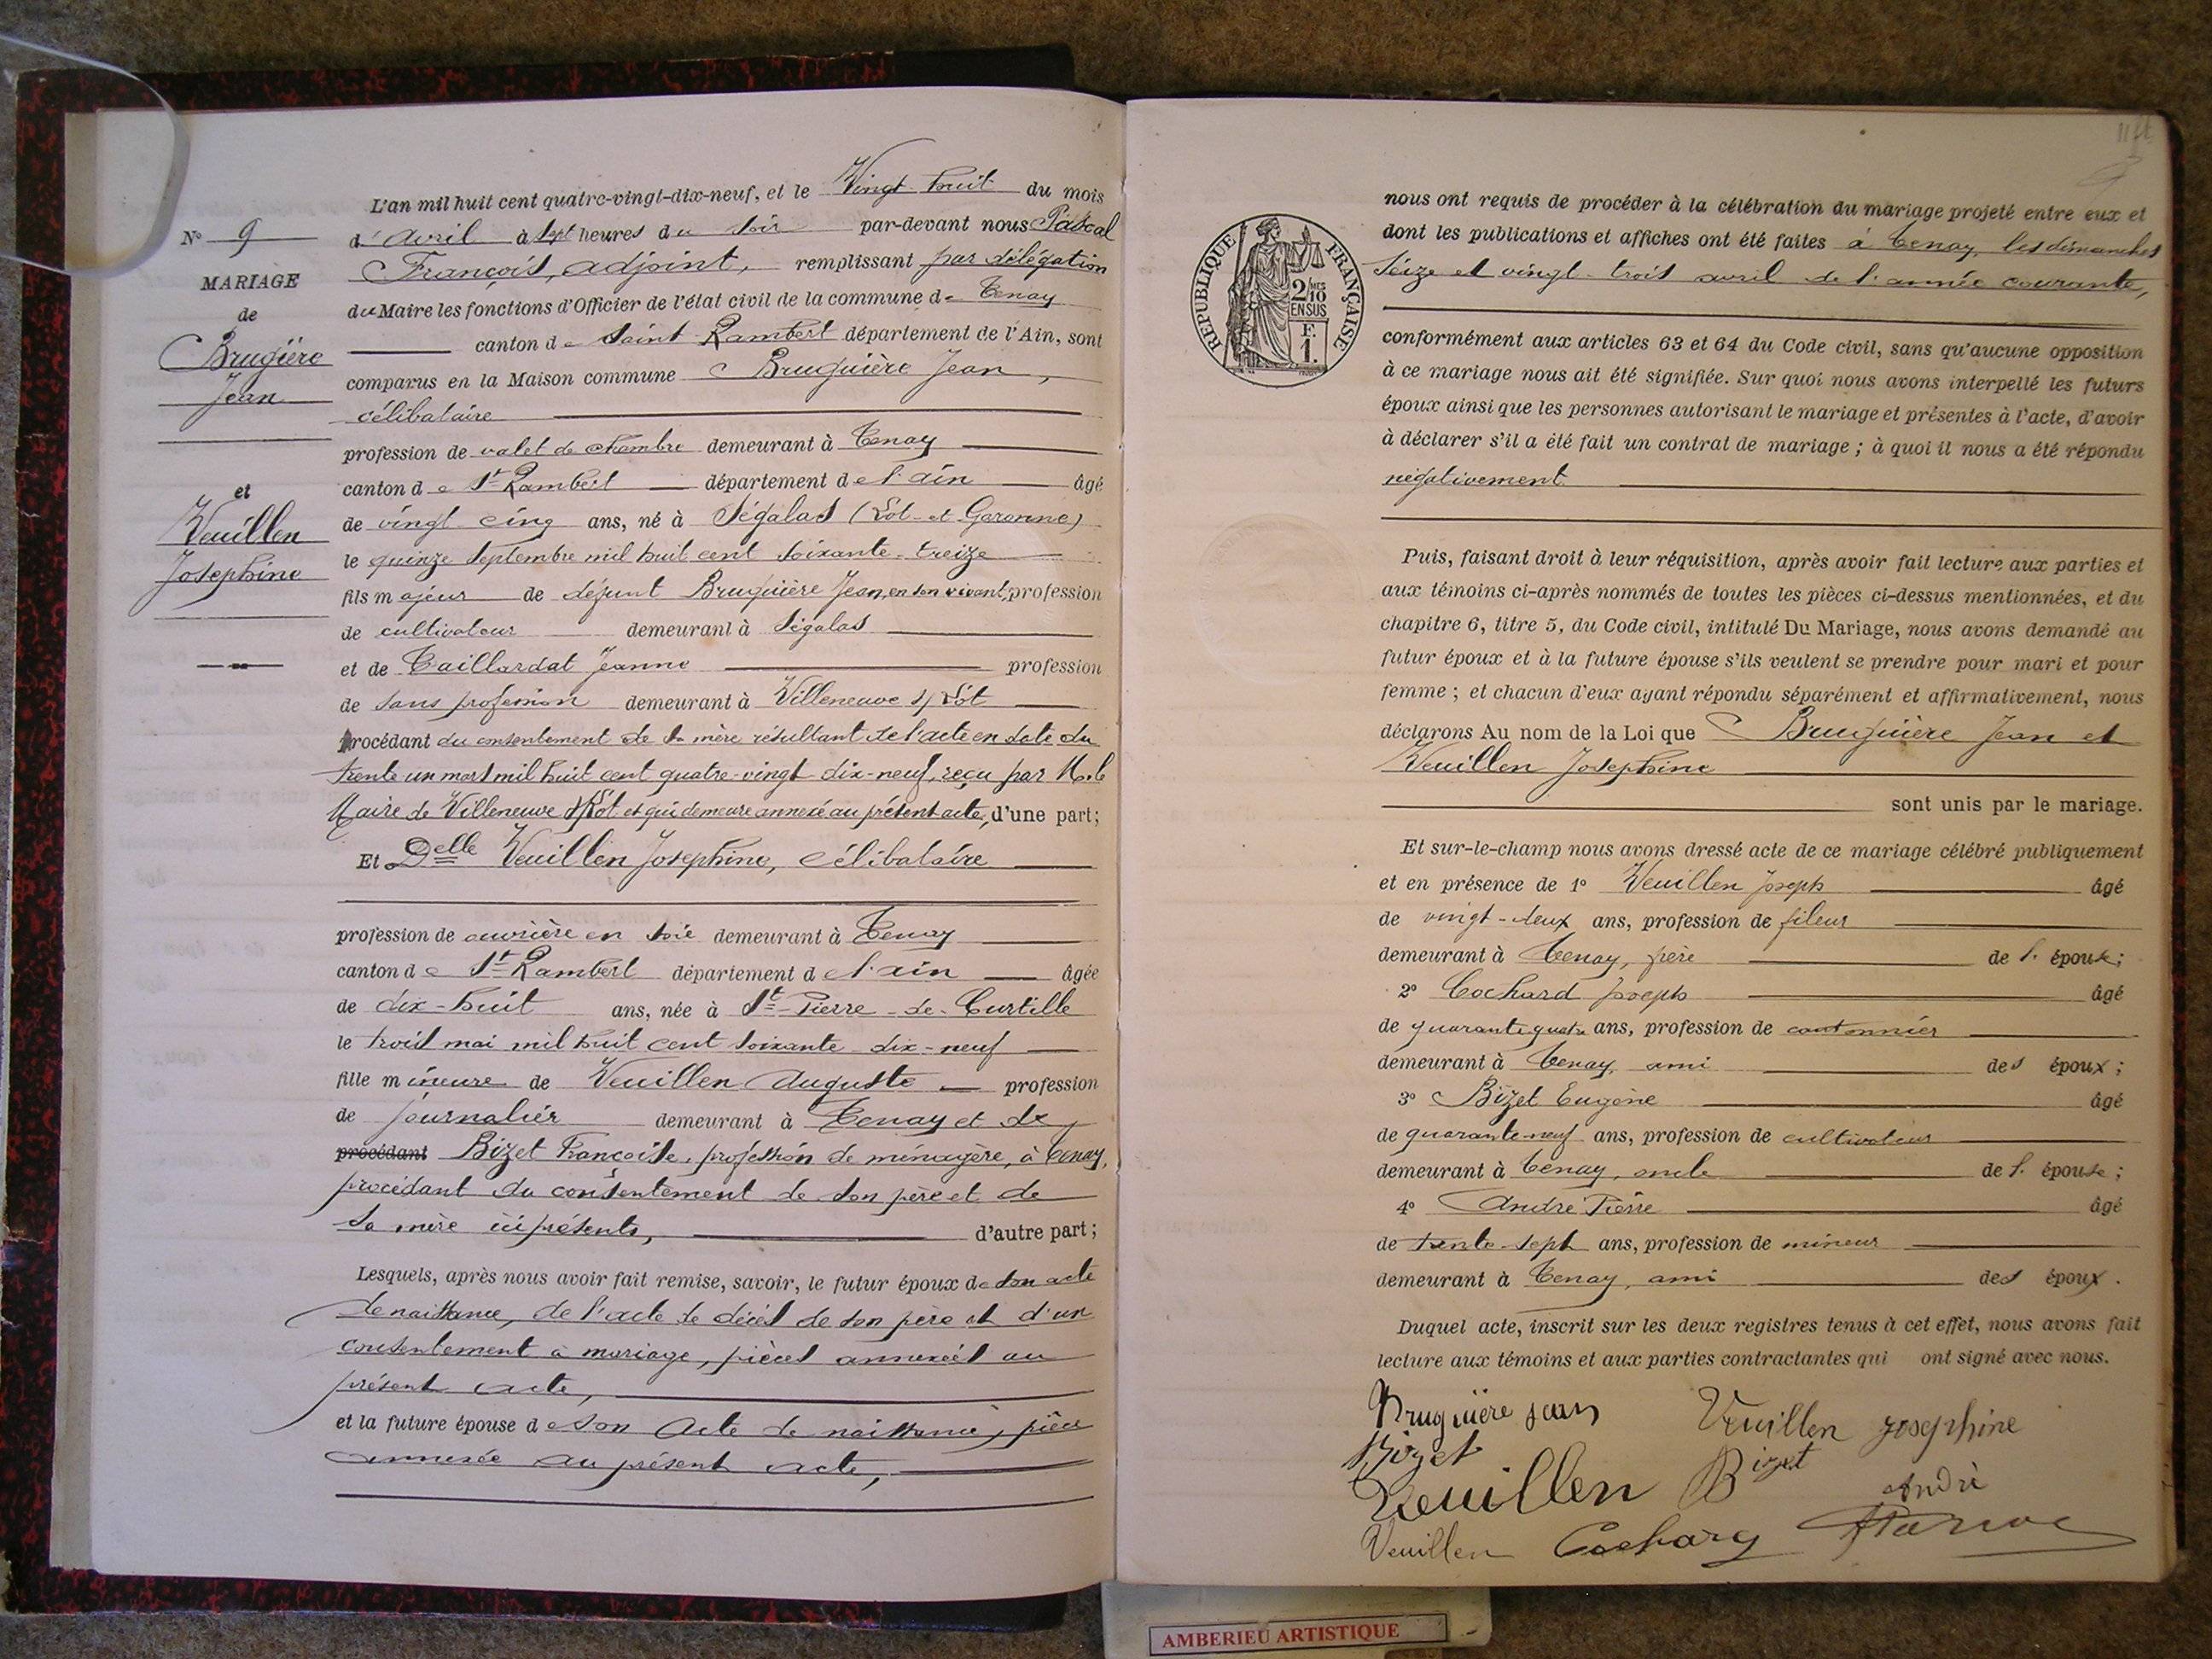 N° 9
MARIAGE
de
Brugière
Jean
et
Veuillen
Josephine
L'an mil huit cent quatre-vingt-dix-neuf, et le Vingt huit du mois
d'avril à sept heures du soir par-devant nous Pascal
François, adjoint, remplissant par délégation
du Maire les fonctions d'Officier de l'état civil de la commune de Tenay
canton de Saint Rambert département de l'Ain, sont
comparus en la Maison commune Bruguière Jean,
célibataire
profession de valet de chambre demeurant à Tenay
canton de St Rambert département de l'ain âgé
de vingt cinq ans, né à Ségalas (Lot-et-Garonne)
le quinze septembre mil huit cent soixante-treize
fils majeur de défunt Bruguière Jean, en son vivant, profession
de cultivateur demeurant à Ségalas
et de Taillardat Jeanne profession
de sans profession demeurant à Villeneuve s/ Lot
procédant du consentement de sa mère résultant de l'acte en date du
trente un mars mil huit cent quatre-vingt dix-neuf, reçu par M. le
Maire de Villeneuve s/Lot et qui demeure annexé au présent acte, d'une part;
Et Delle Veuillen Josephine, célibataire
profession de ouvrière en soie demeurant à Tenay
canton de St Rambert département de l'ain âgée
de dix-huit ans, née à St-Pierre-de-Curtille
le trois mai mil huit cent soixante dix-neuf
fille mineure de Veuillen Auguste profession
de journalier demeurant à Tenay et de
procédant Bizet Françoise, profession de menagère, à Tenay,
procédant du consentement de son père et de
sa mère ici présents, d'autre part;
Lesquels, après nous avoir fait remise, savoir, le futur époux de son acte
de naissance, de l'acte de décès de son père et d'un
consentement à mariage, pièces annexées au
présent acte,
et la future épouse de son acte de naissance, pièce
annexée au présent acte,
nous ont requis de procéder à la célébration du mariage projeté entre eux et
dont les publications et affiches ont été faites à Tenay, les dimanches
seize et vingt-trois avril de l'année courante,
REPUBLIQUE FRANÇAISE
2/10
EN SUS
F.
1.
conformément aux articles 63 et 64 du Code civil, sans qu'aucune opposition
à ce mariage nous ait été signifiée. Sur quoi nous avons interpellé les futurs
époux ainsi que les personnes autorisant le mariage et présentes à l'acte, d'avoir
à déclarer s'il a été fait un contrat de mariage; à quoi il nous a été répondu
négativement
Puis, faisant droit à leur réquisition, après avoir fait lecture aux parties et
aux témoins ci-après nommés de toutes les pièces ci-dessus mentionnées, et du
chapitre 6, titre 5, du Code civil, intitulé Du Mariage, nous avons demandé au
futur époux et à la future épouse s'ils veulent se prendre pour mari et pour
femme; et chacun d'eux ayant répondu séparément et affirmativement, nous
déclarons Au nom de la Loi que Bruguière Jean et
Veuillen Josephine
sont unis par le mariage.
Et sur-le-champ nous avons dressé acte de ce mariage célébré publiquement
et en présence de 1° Veuillen Joseph âgé
de vingt-deux ans, profession de fileur
demeurant à Tenay, frère de l'épouse;
2° Cochard Joseph âgé
de quarante quatre ans, profession de cantonnier
demeurant à Tenay, ami des époux;
3° Bizet Eugène âgé
de quarante-neuf ans, profession de cultivateur
demeurant à Tenay, oncle de l'épouse;
4° André Pierre âgé
de trente-sept ans, profession de mineur
demeurant à Tenay, ami des époux.
Duquel acte, inscrit sur les deux registres tenus à cet effet, nous avons fait
lecture aux témoins et aux parties contractantes qui ont signé avec nous.
Bruguière jean Veuillen josephine
Bizet
Veuillen Bizet André
Veuillen
AMBERIEU ARTISTIQUE